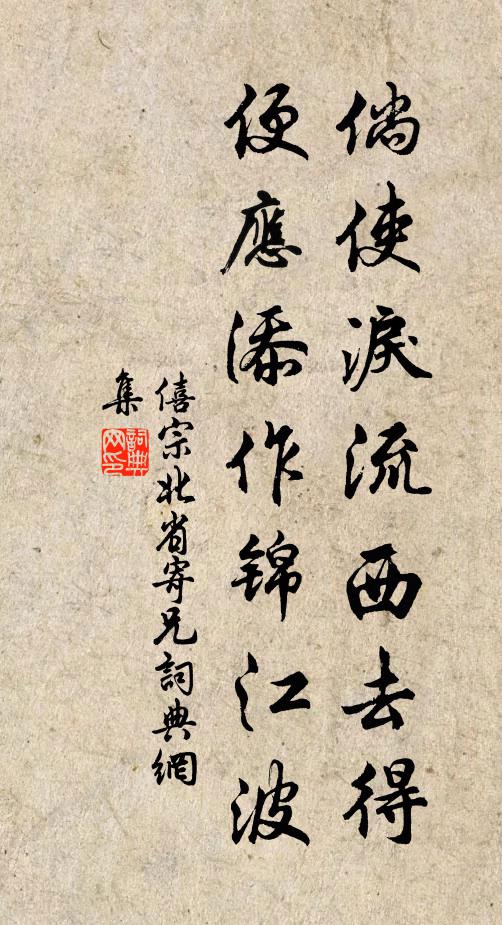 倘使淚流西去得
便應添作錦江波
僖宗北省寄兄詞典網
集
詞典
网印